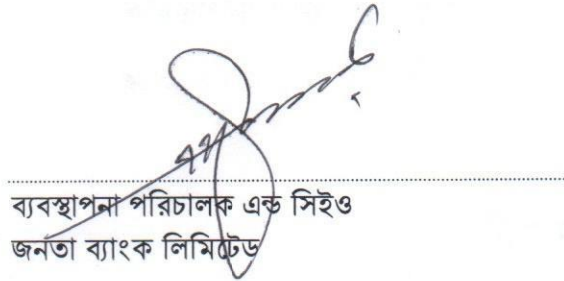 ব্যবস্থাপনা পরিচালক এন্ড সিইও
জনতা ব্যাংক লিমিটেড